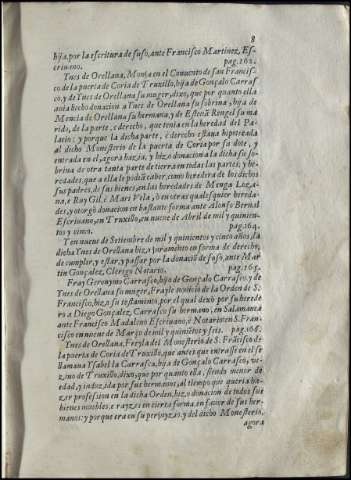 8
hija, por la escritura de suso, ante Francisco Martinez, Es-
criuano. pag. 162.
Ynes de Orellana, Monja en el Conuento de san Francis-
co de la puerta de Coria de Truxillo, hija de Gonçalo Carras-
co, y de Ynes de Orellana su muger, dixo, que por quanto ella
auia hecho donacion a Ynes de Orellana su sobrina, hija de
Mencia de Orellana su hermana, y de Esteuã Rengel su ma
rido, de la parte, e derecho, que tenia en la heredad del Pa-
lacio: y porque la dicha parte, e derecho estaua hipotecada
al dicho Monesterio de la puerta de Coria por su dote, y
entrada en el, agora hazia, y hizo donacion a la dicha su so-
brina de otra tanta parte de tierra en todas las partes, y he-
redades, que a ella le podiã caber, como heredera de los dichos
sus padres, de sus bienes, en las heredades de Menga Loçana,
e Ruy Gil, è Mari Vela, ò en otras qualesquier hereda-
des, y otorgò donacion en bastante forma ante Alonso Bernal
Escriuano, en Truxillo, en nueue de Abril de mil y quinien-
tos y cinco. pag. 164.
Y en nueue de Setiembre de mil y quinientos y cinco años, la
dicha Ynes de Orellana hizo juramento en forma de derecho,
de cumplir, y estar, y passar por la donaciõ de suso, ante Mar
tin Gonçalez, Clerigo Notario. pag. 165.
Fray Geronymo Carrasco, hijo de Gonçalo Carrasco, y de
Ynes de Orellana su muger, Frayle nouicio de la Orden de S.
Francisco, hizo su testamento, por el qual dexò por su herede
ro a Diego Gonçalez Carrasco su hermano, en Salamanca
ante Francisco Madaleno Escriuano, è Notario en S. Fran-
cisco en nueue de Março de mil y quiniẽtos y seis. pag. 168.
Ynes de Orellana, Freyla del Monesterio de S. Frãcisco de
la puerta de Coria de Truxillo, que antes que entrasse en el se
llamaua Ysabel la Carrasca, hija de Gonçalo Carrasco, ve-
zino de Truxillo, dixo, que por quanto ella, siendo menor de
edad, y induzida por sus hermanos, al tiempo que queria ha-
zer profession en la dicha Orden, hizo donacion de todos sus
bienes muebles, e rayzes en cierta forma, en fauor de sus her-
manos: y porque era en su perjuyzio, y del dicho Monesterio,
agora